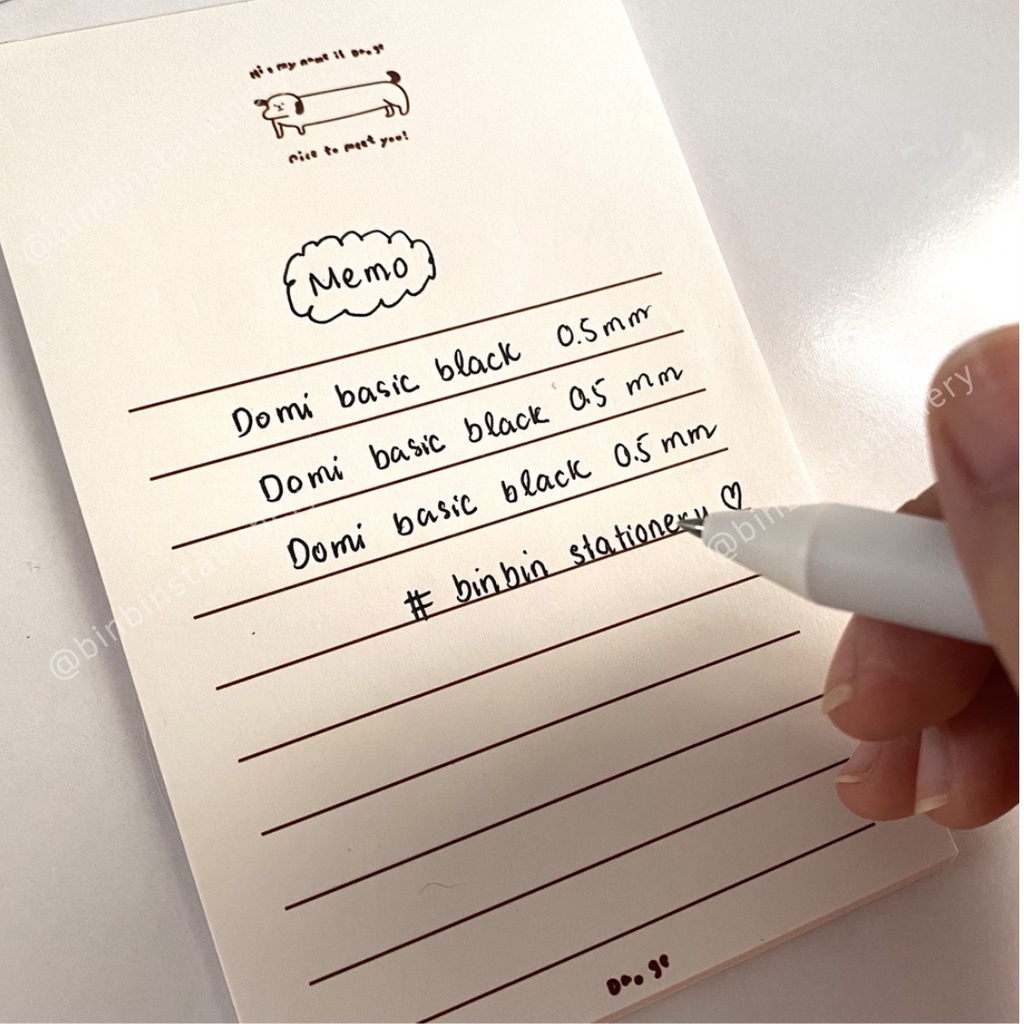 Hi, my name is Do..ge
nice to meet you!
Memo
Domi basic black 0.5mm
Domi basic black 0.5 mm
Domi basic black 0.5 mm
# binbin stationery ♡
Do..ge
@binbinstationery